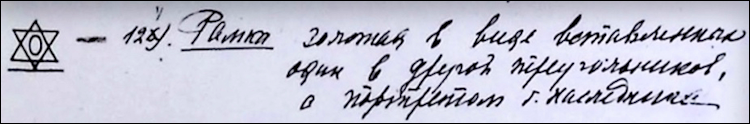 О — 12х). Рамка золотая в виде вставленных
один в другой треугольников,
с портретом б. наследника